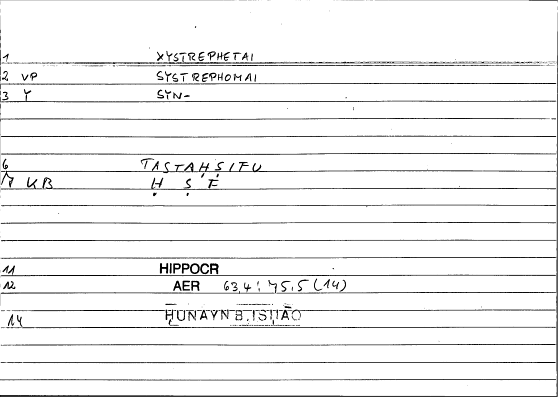 1 XYSTREPHETAI
2 VP SYSTREPHOMAI
3 Y SYN-
6 TASTAḤṢIFU
7 KB Ḥ Ṣ F
11 HIPPOCR
12 AER 63,4: 75,5 (14)
14 ḤUNAYN B. ISḤĀQ